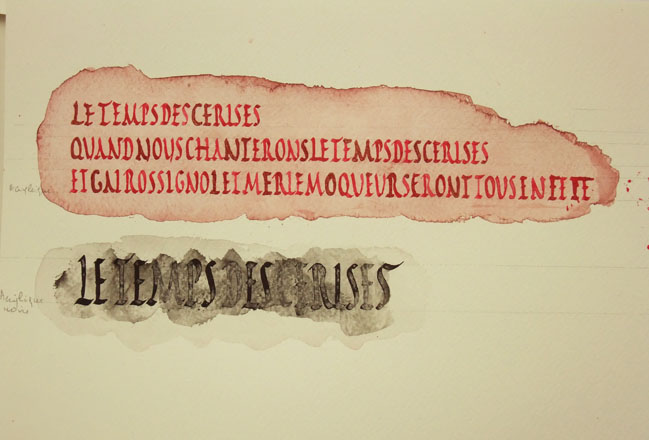 LETEMPSDESCERISES
QUANDNOUSCHANTERONSLETEMPSDESCERISES
ETGAIROSSIGNOLETMERLEMOQUEURSERONTTOUSENFETE
LETEMPSDESCERISES